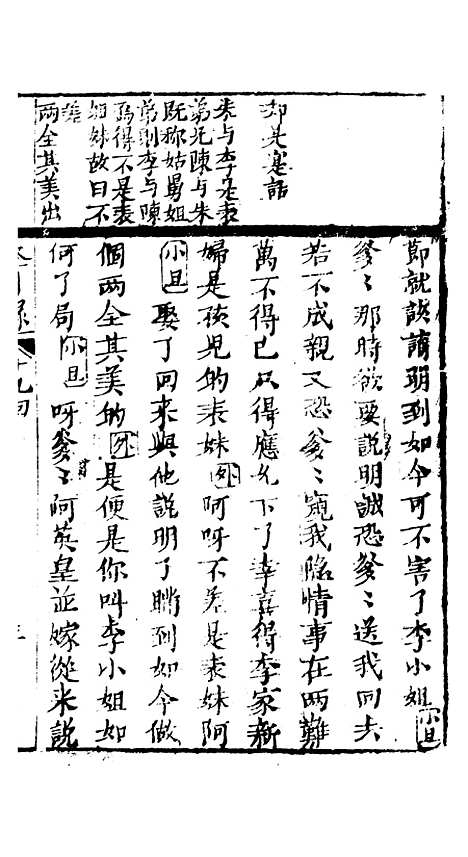 却是寔話
朱与李是表
弟兄陳与朱
既称姑舅姐
弟則李与陳
焉得不是表
姐妹故曰不
差
两全其美出
節就該講明到如今可不害了李小姐小旦
爹〻那時欲要說明誠恐爹〻送我回去
若不成親又恐爹〻窺我隐情事在两難
萬不得已只得應允下了幸喜得李家新
婦是孩児的表妹外呵呀不差是表妹阿
小旦娶了回来與他說明了瞞到如今做
個两全其美的外是便是你叫李小姐如
何了局小旦呀爹〻阿英皇並嫁從来說
十九回